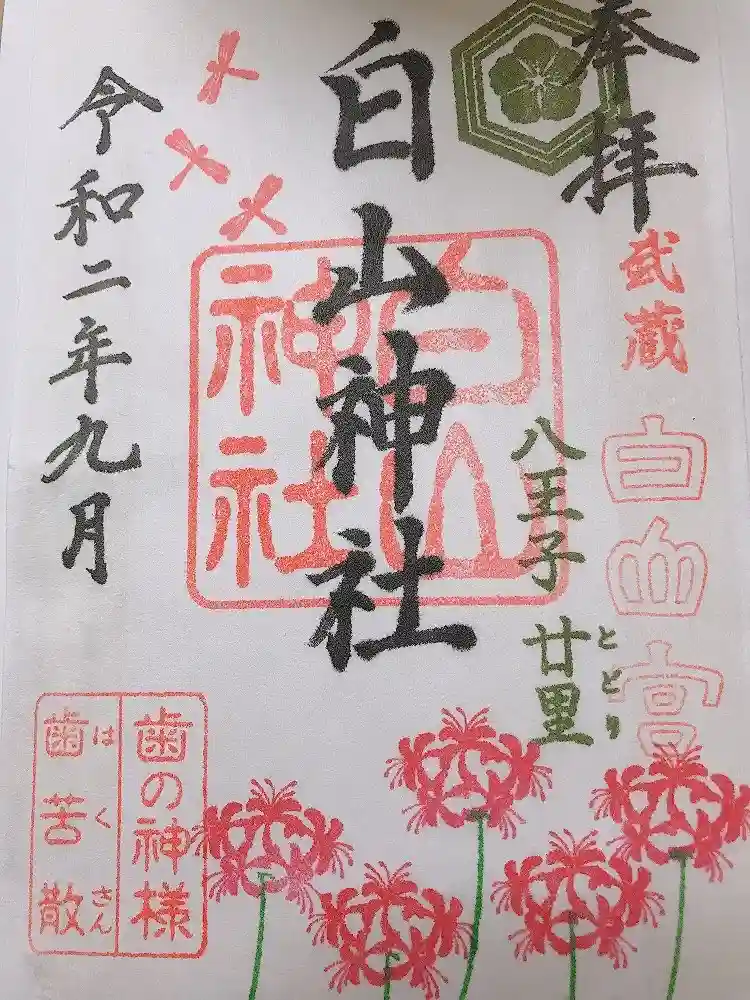 奉拝
武蔵
白山宮
八王子 廿里
ととり
白山神社
白山
神社
令和二年九月
歯の神様
歯苦散
はくさん